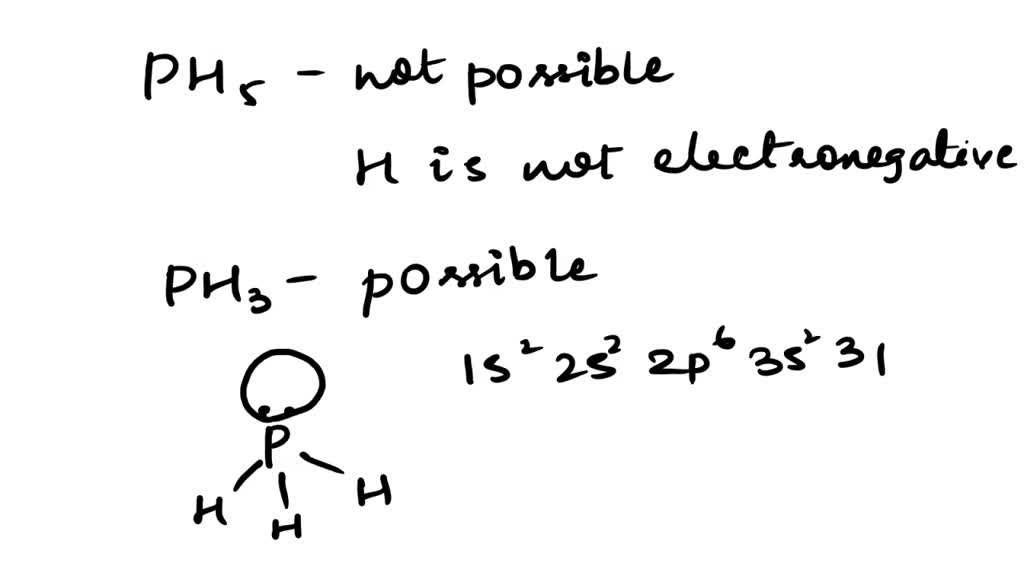 PH₅ - not possible
H is not electronegative
PH₃ - possible
1s² 2s² 2p⁶ 3s² 31
P
H H H